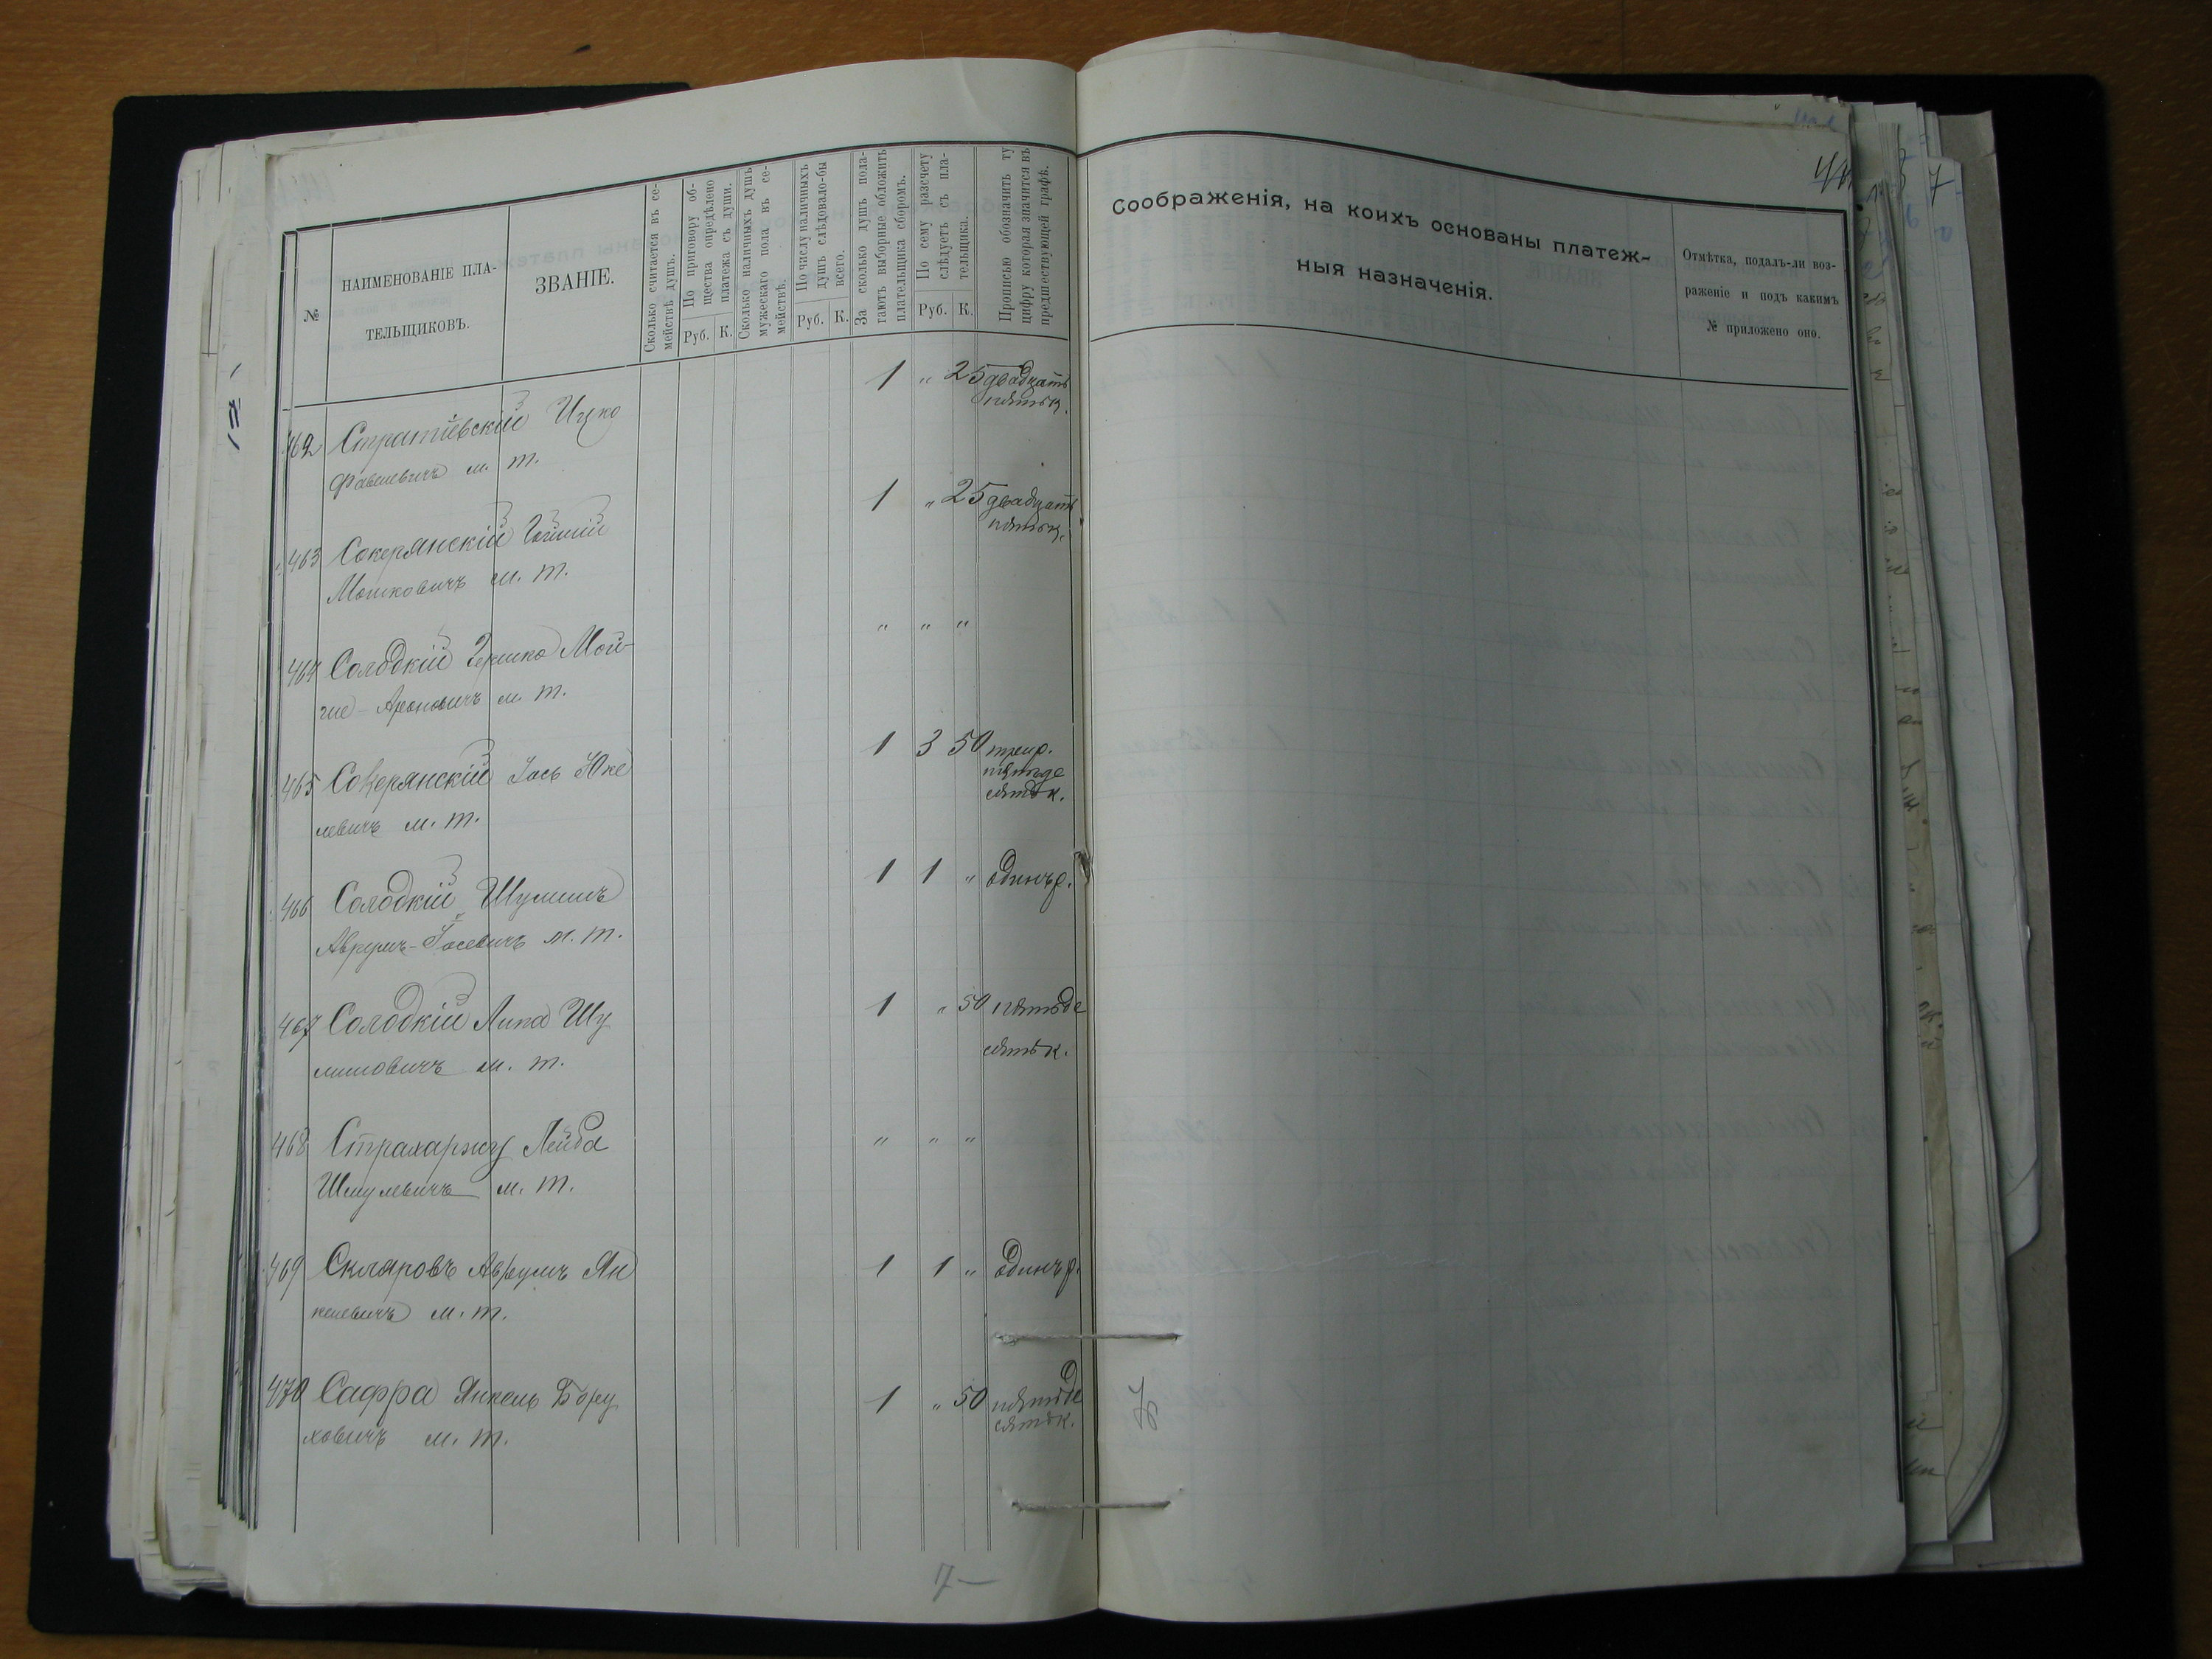 №
НАИМЕНОВАНІЕ ПЛА-
ТЕЛЬЩИКОВЪ.
ЗВАНІЕ.
Сколько считается въ се-
мействѣ душъ.
По приговору об-
щества опредѣлено
платежа съ души.
Руб. К.
Сколько наличныхъ душъ
мужескаго пола въ се-
мействѣ.
По числу наличныхъ
душъ слѣдовало-бы
всего.
Руб. К.
За сколько душъ пола-
гаютъ выборные обложить
плательщика сборомъ.
По сему разсчету
слѣдуетъ съ пла-
тельщика.
Руб. К.
Прописью обозначить ту
цифру которая значится въ
предшествующей графѣ.
462 Стратіевскій Ицко 1 " 25 двадцать
Фавелевичъ м. т. пять к.
463 Сокерянскій 1 " 25 двадцать
Мошковичъ м. т. пять к.
464 Солодкій Гершко Мой- " " "
Ароновичъ м. т.
465 Сокерянскій Іось Юке 1 3 50 три р.
левичъ м. т. пятьде
сятъ к.
466 Солодкій Шулимъ 1 1 " одинъ р.
Аврумъ-Іосевичъ м. т.
467 Солодкій Липа Шу 1 " 50 пятьде
лимовичъ м. т. сятъ к.
468 Лейба " " "
Шмулевичъ м. т.
469 Скляровъ Аврумъ Ян 1 1 " одинъ р.
келевичъ м. т.
470 Сафра Янкель Бору 1 " 50 пятьде
ховичъ м. т. сятъ к.
7—
Соображенія, на коихъ основаны платеж-
ныя назначенія.
Отмѣтка, подалъ-ли воз-
раженіе и подъ какимъ
№ приложено оно.